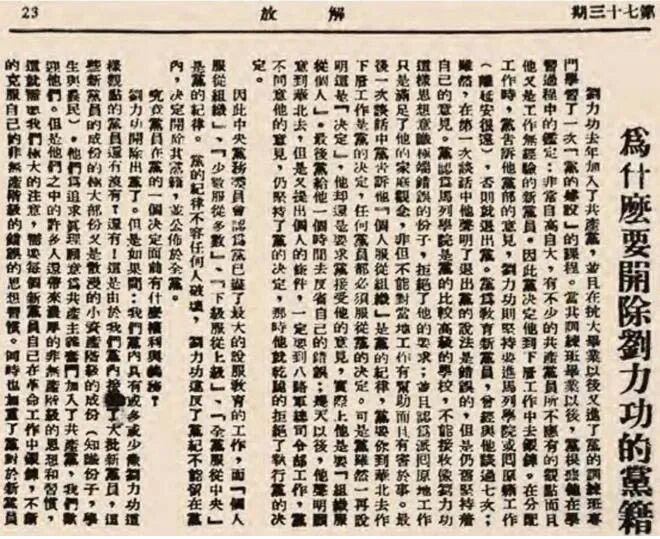 第七十三期
解放
23
為什麼要開除劉力功的黨籍
劉力功去年加入了共產黨，並且在抗大畢業以後又進了黨的訓練班專
門學習了一次「黨的建設」的課程。當其訓練班畢業以後，黨根據他在學
習過程中的鑒定：非常自高自大，有不少的共產黨員所不應有的觀點而且
他又是工作無經驗的新黨員。因此黨決定他到下層工作中去鍛鍊。在分配
工作時，黨告訴他黨部的意見，劉力功則堅持要進馬列學院或回原籍工作
（離延安很遠），否則就退出黨。黨為教育新黨員，曾經與他談過七次；
雖然，在第一次談話中他聲明了退出黨的說法是錯誤的，但是仍舊堅持着
自己的意見。黨認為馬列學院是黨的比較高級的學校，不能接收像劉力功
這樣思想意識極端錯誤的份子，拒絕了他的要求；並且認為派回原地工作
只是滿足了他的家庭觀念，非但不能對當地工作有幫助而且有害於事。最
後一次談話中黨告訴他「個人服從組織」是黨的紀律，黨要你到華北去作
下層工作是黨的決定，任何黨員都必須服從黨的決定。可是黨雖然一再說
明這是「決定」，他却還是要求黨接受他的意見，實際上他是要「組織服
從個人」。最後黨給他一個時間去反省自己的錯誤；幾天以後，他聲明願
意到華北去，但是又提出個人的條件，一定要到八路軍總司令部工作，黨
不同意他的意見，仍堅持了黨的決定，那時他就乾脆的拒絕了執行黨的決
定。
因此中央黨務委員會認為黨已盡了最大的說服教育的工作，而「個人
服從組織」、「少數服從多數」、「下級服從上級」、「全黨服從中央」
是黨的紀律。黨的紀律不容任何人破壞，劉力功違反了黨紀不能留在黨
內，決定開除其黨籍，並公佈於全黨。
究竟黨員在黨的一個決定面前有什麼權利與義務？
劉力功開除出黨了。但是如果問：我們黨內具有或多或少像劉力功這
樣觀點的黨員還有沒有？還有！這是由於我們黨內接了大批新黨員，這
些新黨員的成份的極大部份又是散漫的小資產階級的成份（知識份子，學
生與農民），他們為追求眞理願意為共產主義奮鬥加入了共產黨，我們歡
迎他們。但是他們之中的許多人還帶來濃厚的非無產階級的思想和習慣，
這就需要我們極大的注意，需要每個新黨員自己在革命工作中鍛鍊，不斷
的克服自己的非無產階級的錯誤的思想習慣。同時也加重了黨對於新黨員